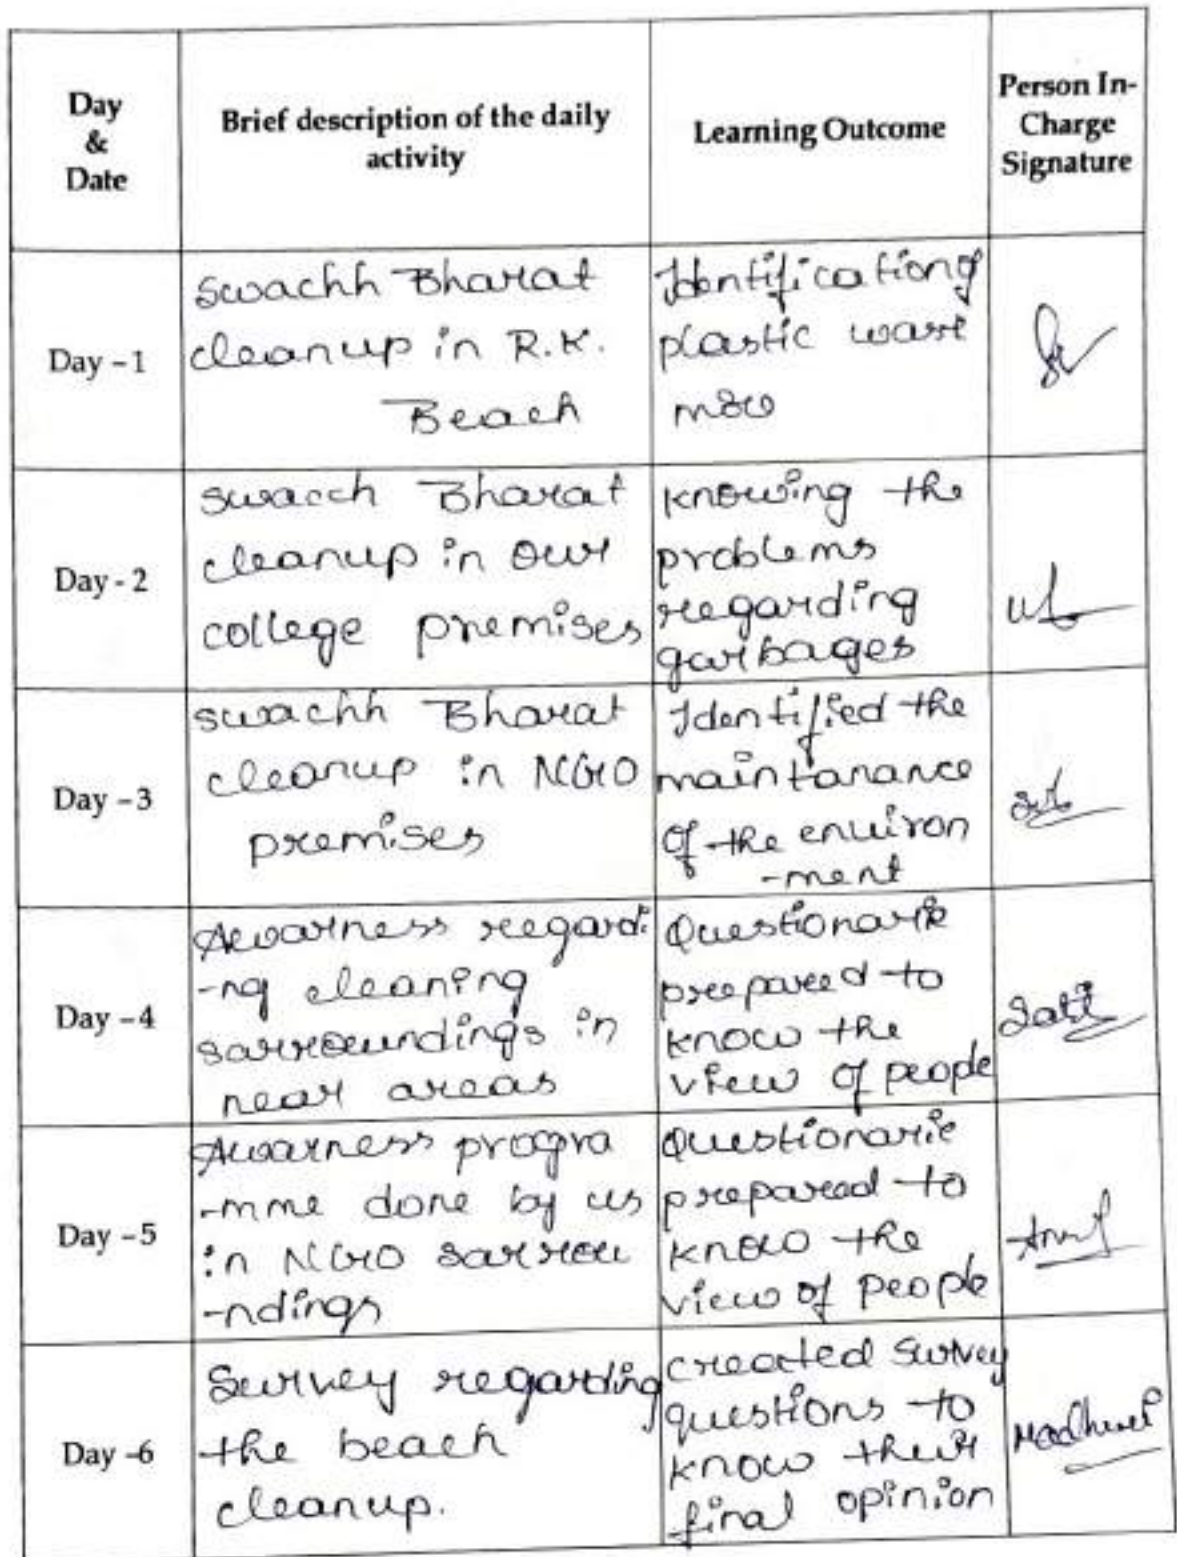 Day
&
Date
Brief description of the daily
activity
Learning Outcome
Person In-
Charge
Signature
Day – 1
Swachh Bharat
cleanup in R.K.
Beach
Identification of
plastic wast
Day - 2
swacch Bharat
cleanup in our
college premises
knowing the
problems
regarding
garbages
Day – 3
swachh Bharat
cleanup in NGO
premises
Identified the
maintanance
of the environ
-ment
Day – 4
Awarness regardi
-ng cleaning
sarroundings in
near areas
Questionarie
prepared to
know the
view of people
Day – 5
Awarness progra
-mme done by us
in NGO sarrou
-ndings
Questionarie
prepared to
know the
view of people
Day –6
Survey regarding
the beach
cleanup.
created survey
questions to
know their
final opinion